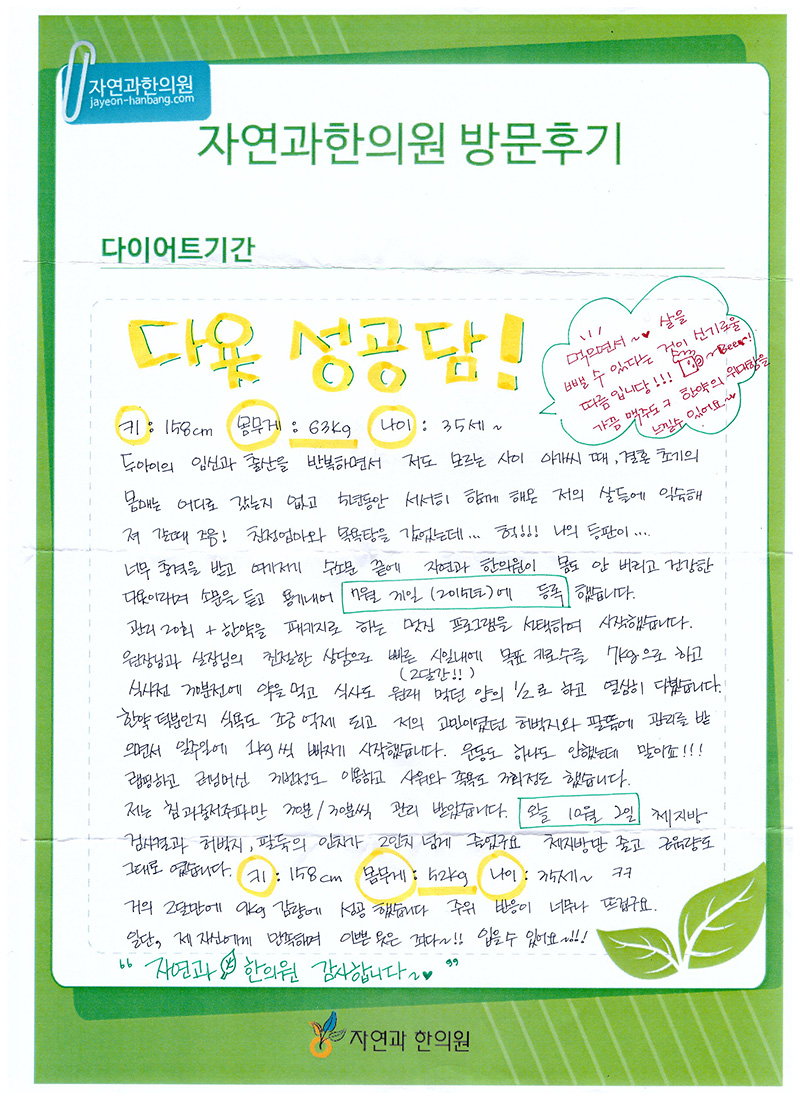 자연과한의원
jayeon-hanbang.com
자연과한의원 방문후기
다이어트기간
다욧 성공담!
먹으면서~♥ 살을
뺄 수 있다는 것이 신기로울
따름입니다!!! ~Beer!
가끔 맥주도 ㅋ 한약의 위대함을
느낄수 있어요~♥
키 : 158cm 몸무게 : 63kg 나이 : 35세~
두아이의 임신과 출산을 반복하면서 저도 모르는 사이 아개씨 때, 결혼 초기의
몸매는 어디로 갔는지 없고 5년동안 서서히 함께 해온 저의 살들에 익숙해
져 갈때 즈음! 친정엄마와 목욕탕을 갔었는데... 헉!!! 나의 등판이...
너무 충격을 받고 여기저기 수소문 끝에 자연과 한의원이 몸도 안 버리고 건강한
다욧이라며 소문을 듣고 용기내어 7월 21일 (2015년)에 등록 했습니다.
관리 20회 + 한약을 패키지로 하는 멋진 프로그램을 선택하여 시작했습니다.
원장님과 실장님의 친절한 상담으로 빠른 시일내에 목표 키로수를 7kg으로 하고
(2달간!!)
식사전 30분전에 약을 먹고 식사도 원래 먹던 양의 1/2로 하고 열심히 다녔습니다.
한약 덕분인지 식욕도 조금 억제 되고 저의 고민이였던 허벅지와 팔뚝에 관리를 받
으면서 일주일에 1kg씩 빠지기 시작했습니다. 운동도 하나도 안했는데 말이죠!!!
랩핑하고 러닝머신 개번정도 이용하고 샤워와 족욕도 3회정도 했습니다.
저는 침과 중저주파만 30분/30분씩 관리 받았습니다. 오늘 10월 2일 체지방
검사결과 허벅지, 팔뚝의 인치가 2인치 넘게 줄었구요 체지방만 줄고 근육량도
그대로 였습니다. 키 : 158cm 몸무게 : 52kg 나이 : 35세~ ㅋㅋ
거의 2달만에 9kg 감량에 성공 했습니다 주위 반응이 너무나 뜨겁구요.
일단, 제 자신에게 만족하며 이쁜 옷은 죄다~!! 입을수 있어요~!!!
" 자연과 한의원 감사합니다~♥ "
자연과 한의원